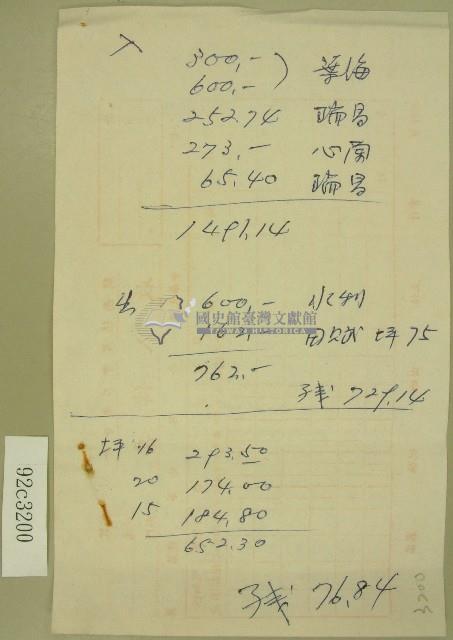 入
300,-
600,- 葉海
252.74 瑞昌
273,- 心蘭
65.40 瑞昌
1491.14
出 600,- 水利
162,- 田賦 坪 75
762.-
残 729.14
坪 16 293.50
20 174.00
15 184.80
652.30
残 76.84
3200
92c3200
國史館臺灣文獻館
TAIWAN HISTORICA